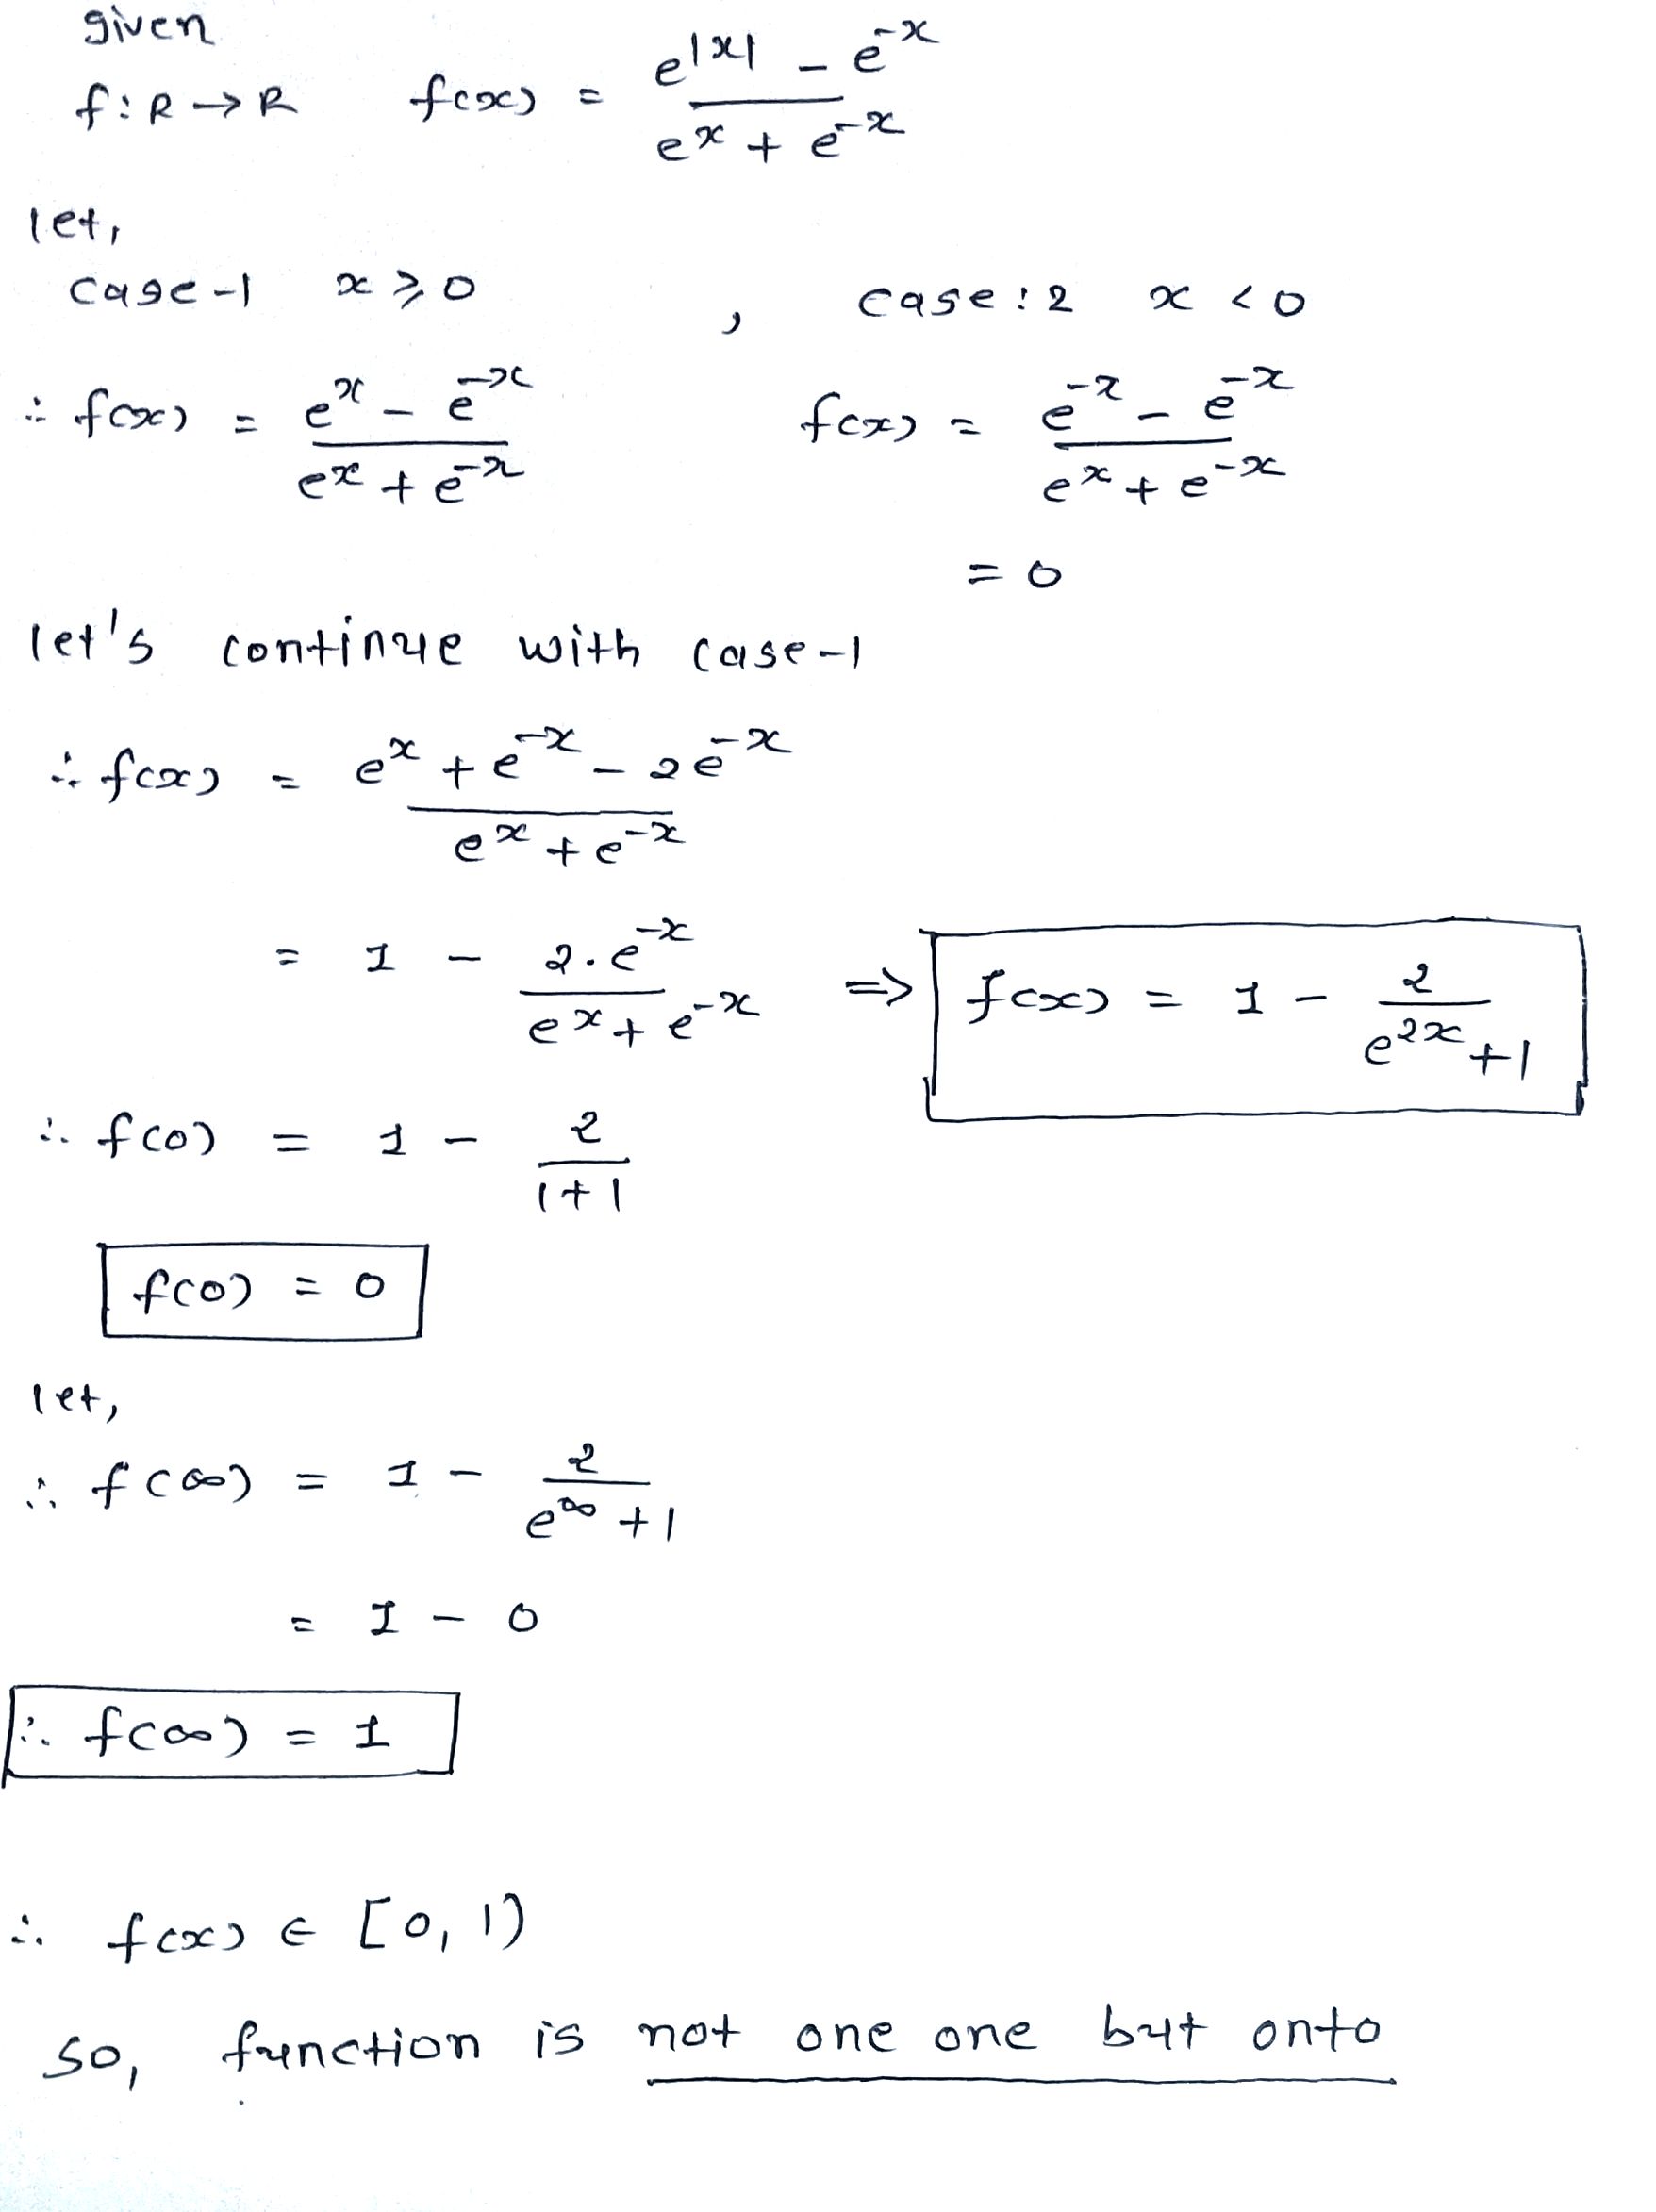 given
f:R→R f(x) = (e^|x| - e^-x)/(e^x + e^-x)
let,
case-1 x ≥ 0 , case:2 x < 0
∴ f(x) = (e^x - e^-x)/(e^x + e^-x) f(x) = (e^-x - e^-x)/(e^x + e^-x)
= 0
let's continue with case-1
∴ f(x) = (e^x + e^-x - 2e^-x)/(e^x + e^-x)
= 1 - (2.e^-x)/(e^x + e^-x) => f(x) = 1 - 2/(e^2x + 1)
∴ f(0) = 1 - 2/(1+1)
f(0) = 0
let,
∴ f(∞) = 1 - 2/(e^∞ + 1)
= 1 - 0
∴ f(∞) = 1
∴ f(x) ∈ [0, 1)
so, function is not one one but onto